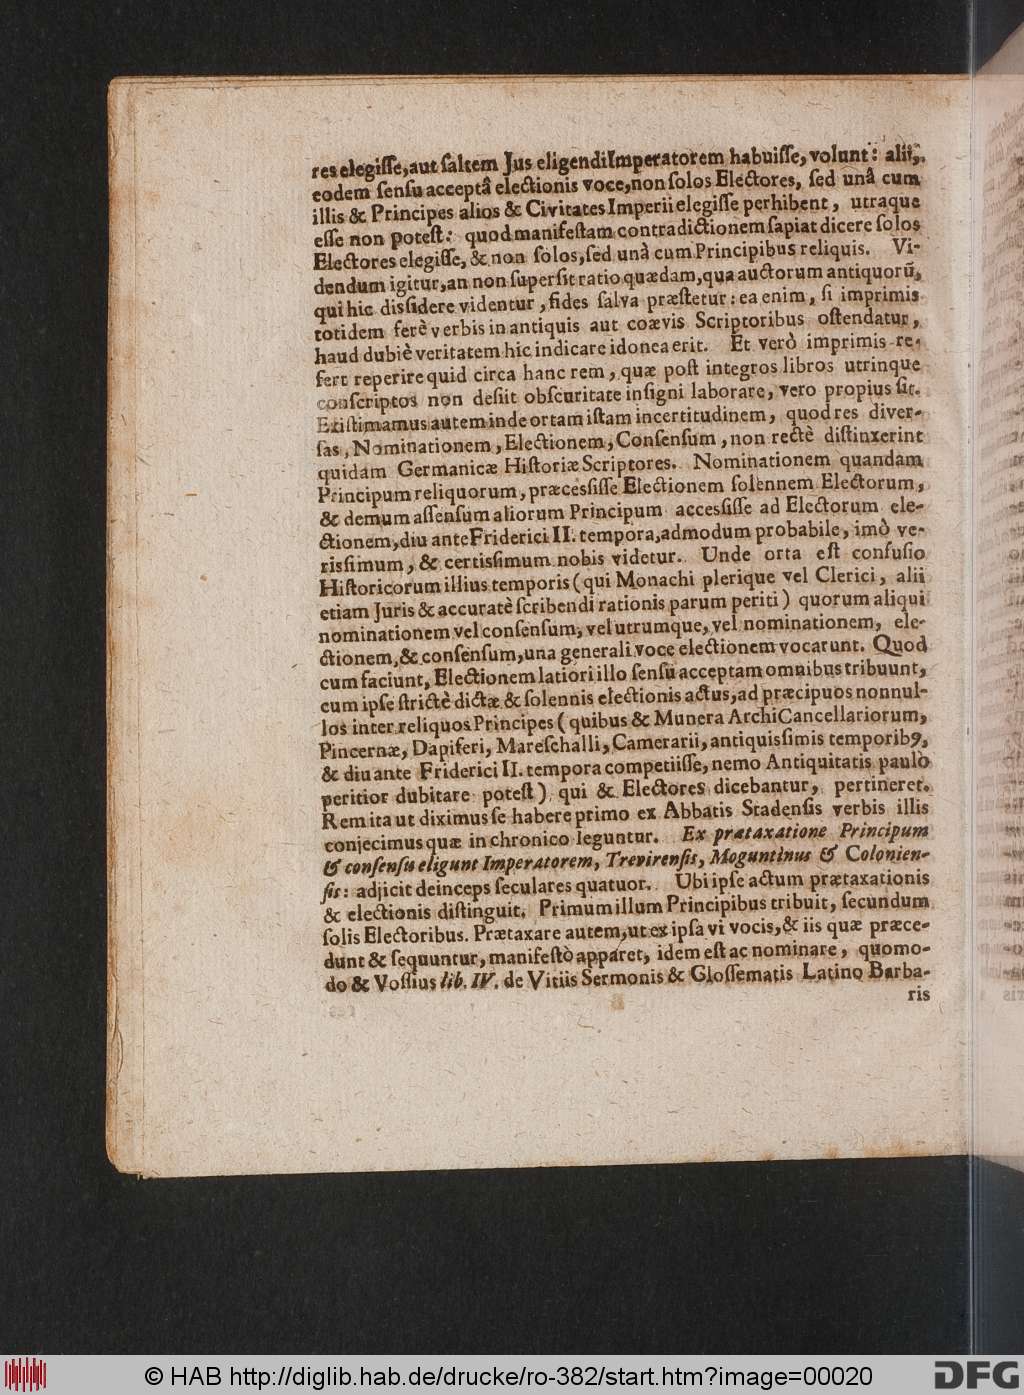 res elegiſſe, aut ſaltem Jus eligendi Imperatorem habuiſſe, volunt: alii,
eodem ſenſu acceptâ electionis voce, non ſolos Electores, ſed unâ cum
illis & Principes alios & Civitates Imperii elegiſſe perhibent, utraque
eſſe non poteſt: quod manifeſtam contradictionem ſapiat dicere ſolos
Electores elegiſſe, & non ſolos, ſed unà cum Principibus reliquis. Vi-
dendum igitur, an non ſuperſit ratio quædam, qua auctorum antiquorũ,
qui hic disſidere videntur, fides ſalva præſtetur: ea enim, ſi imprimis
totidem ferè verbis in antiquis aut coævis Scriptoribus oſtendatur,
haud dubiè veritatem hic indicare idonea erit. Et verò imprimis re-
fert reperire quid circa hanc rem, quæ poſt integros libros utrinque
conſcriptos non deſiit obſcuritate inſigni laborare, vero propius ſit.
Exiſtimamus autem inde ortam iſtam incertitudinem, quod res diver-
ſas, Nominationem, Electionem, Conſenſum, non rectè diſtinxerint
quidam Germanicæ Hiſtoriæ Scriptores. Nominationem quandam
Principum reliquorum, præcesſiſſe Electionem ſolennem Electorum,
& demum aſſenſum aliorum Principum accesſiſſe ad Electorum ele-
ctionem, diu ante Friderici II. tempora, admodum probabile, imò ve-
risſimum, & certisſimum nobis videtur. Unde orta eſt confuſio
Hiſtoricorum illius temporis (qui Monachi plerique vel Clerici, alii
etiam Juris & accuratè ſcribendi rationis parum periti) quorum aliqui
nominationem vel conſenſum, vel utrumque, vel nominationem, ele-
ctionem, & conſenſum, una generali voce electionem vocarunt. Quod
cum faciunt, Electionem latiori illo ſenſu acceptam omnibus tribuunt,
cum ipſe ſtrictè dictæ & ſolennis electionis actus, ad præcipuos nonnul-
los inter reliquos Principes (quibus & Munera ArchiCancellariorum,
Pincernæ, Dapiferi, Mareſchalli, Camerarii, antiquisſimis temporibꝯ,
& diu ante Friderici II. tempora competiiſſe, nemo Antiquitatis paulò
peritior dubitare poteſt) qui & Electores dicebantur, pertineret.
Rem ita ut diximus ſe habere primo ex Abbatis Stadenſis verbis illis
conjecimus quæ in chronico leguntur. Ex prætaxatione Principum
& conſenſu eligunt Imperatorem, Trevirenſis, Moguntinus & Colonien-
ſis: adjicit deinceps ſeculares quatuor. Ubi ipſe actum prætaxationis
& electionis diſtinguit. Primum illum Principibus tribuit, ſecundum
ſolis Electoribus. Prætaxare autem, ut ex ipſa vi vocis, & iis quæ præce-
dunt & ſequuntur, manifeſtò apparet, idem eſt ac nominare, quomo-
do & Voſſius lib. IV. de Vitiis Sermonis & Gloſſematis Latino Barba-
ris
© HAB http://diglib.hab.de/drucke/ro-382/start.htm?image=00020
DFG